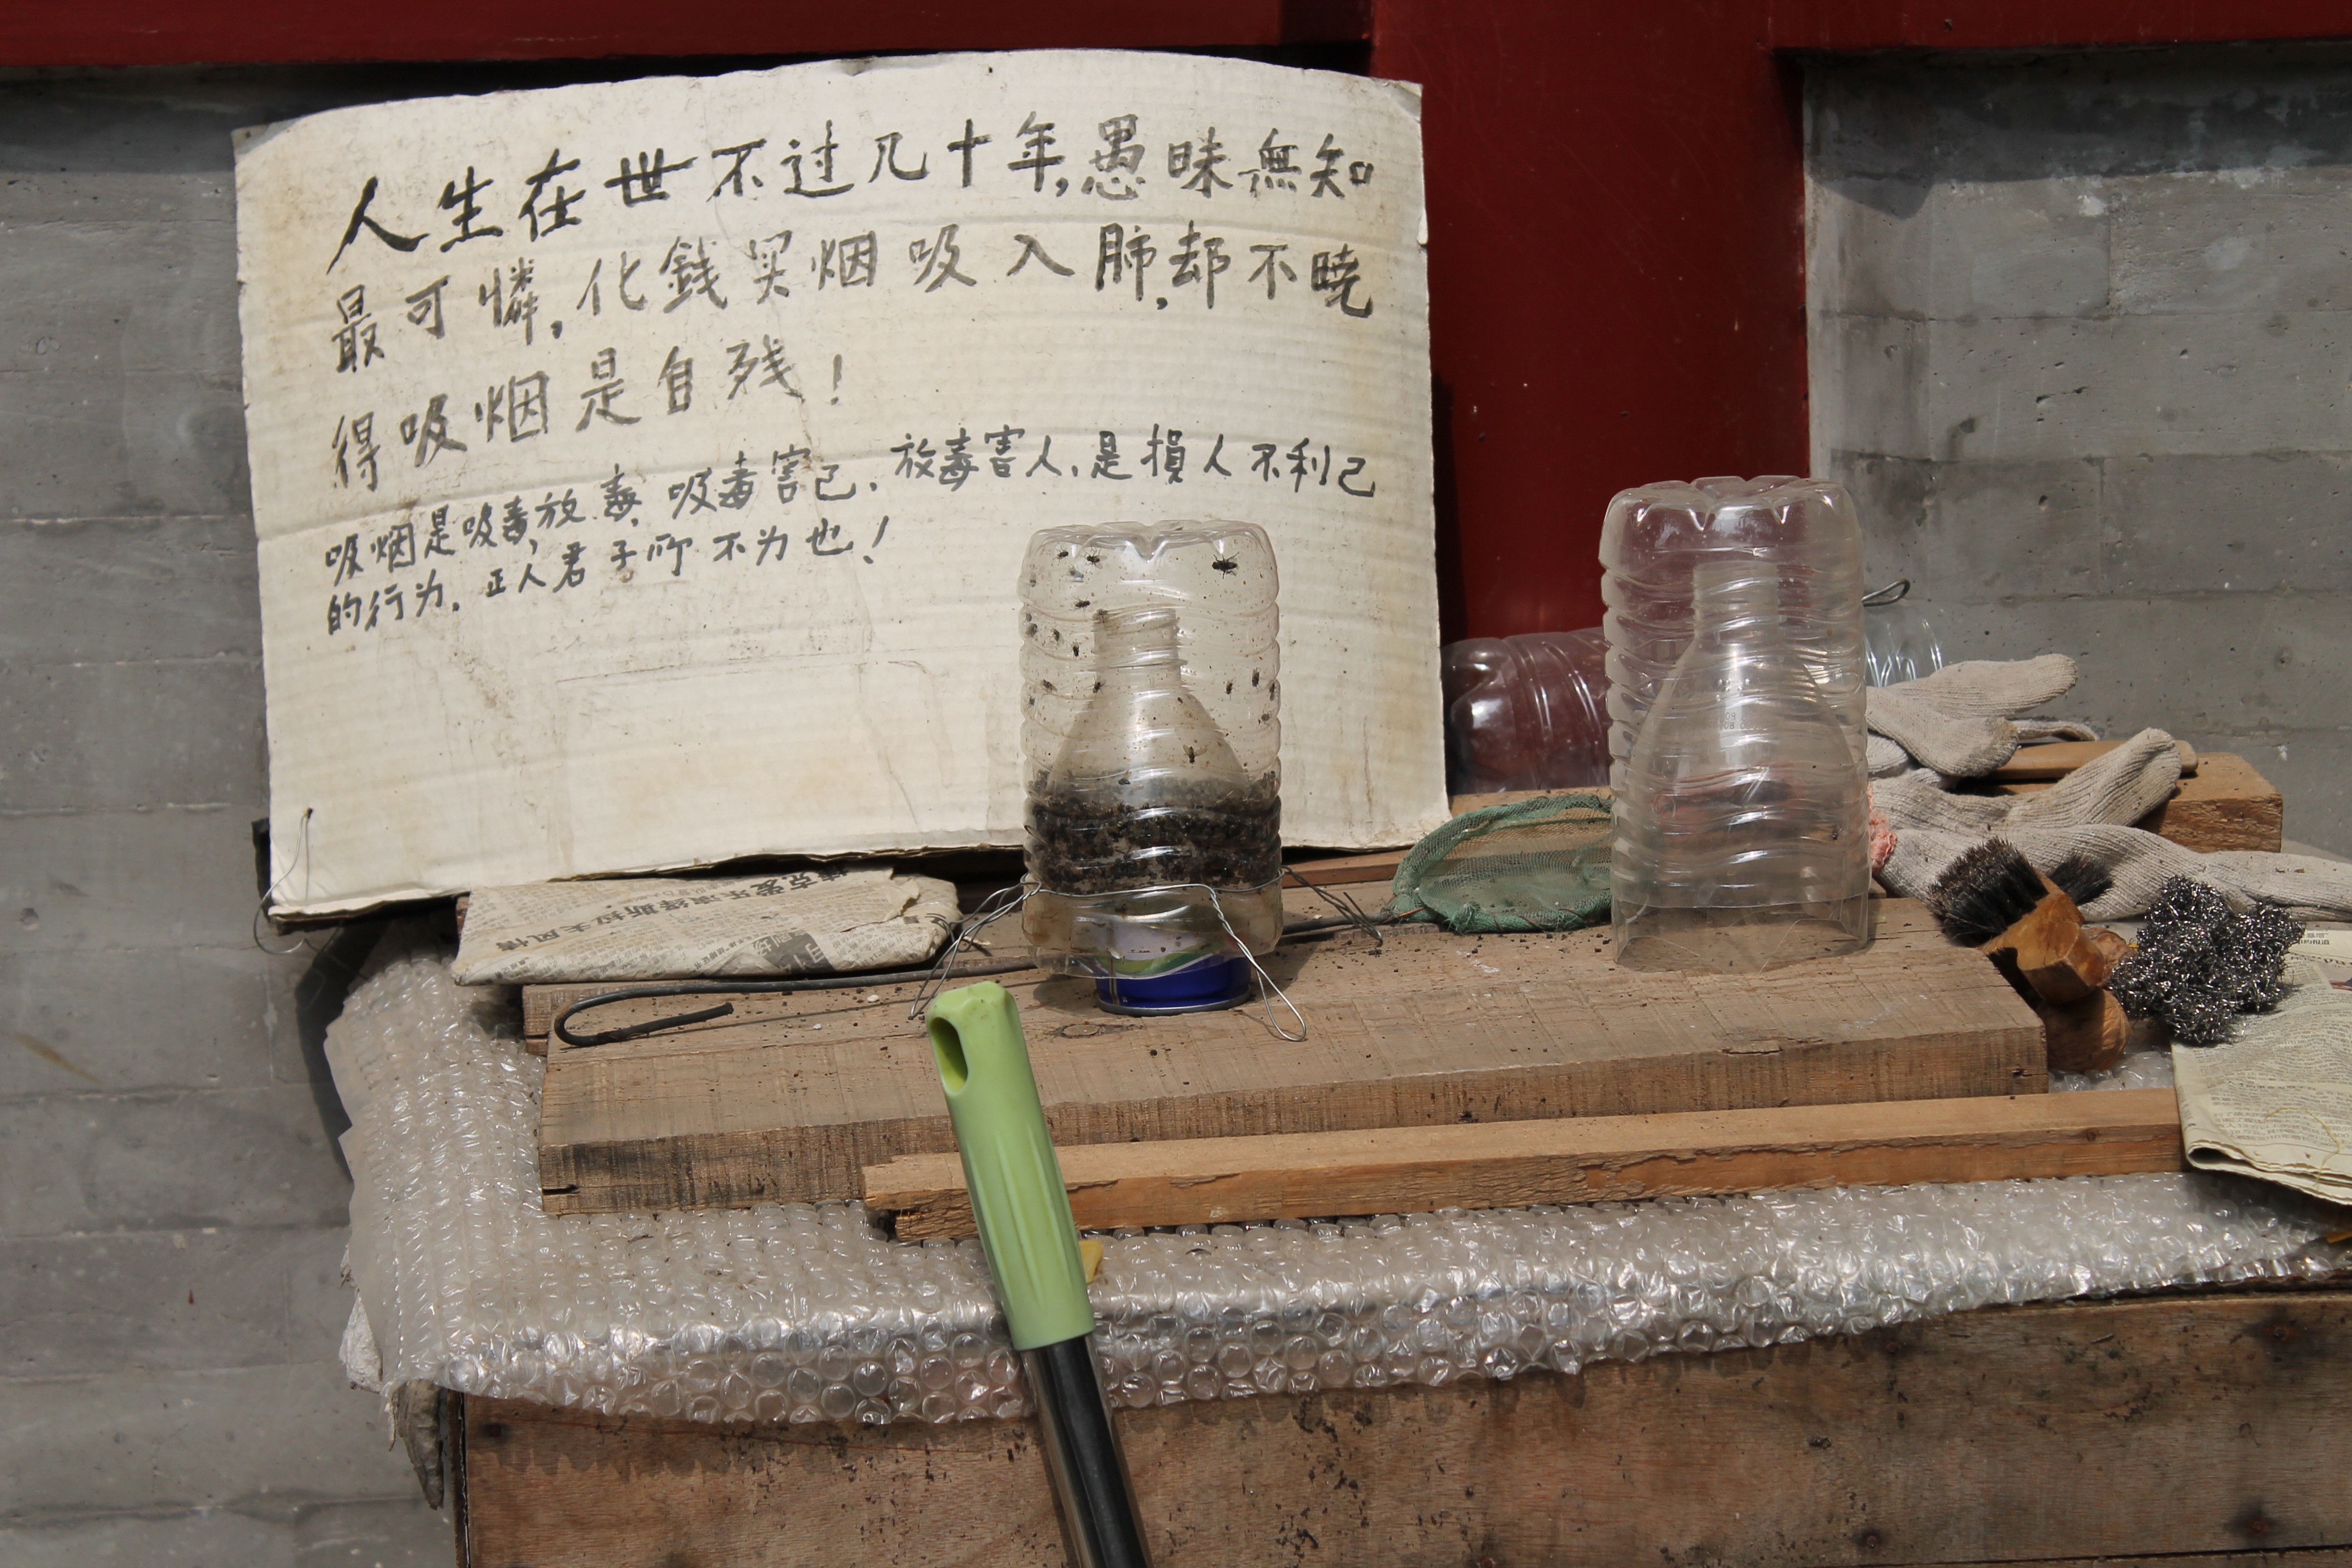 人生在世不过几十年,愚昧無知
最可憐,化錢买烟吸入肺,却不曉
得吸烟是自残!
吸烟是吸毒,放毒,吸毒害己.放毒害人,是損人不利己
的行为.正人君子所不为也!